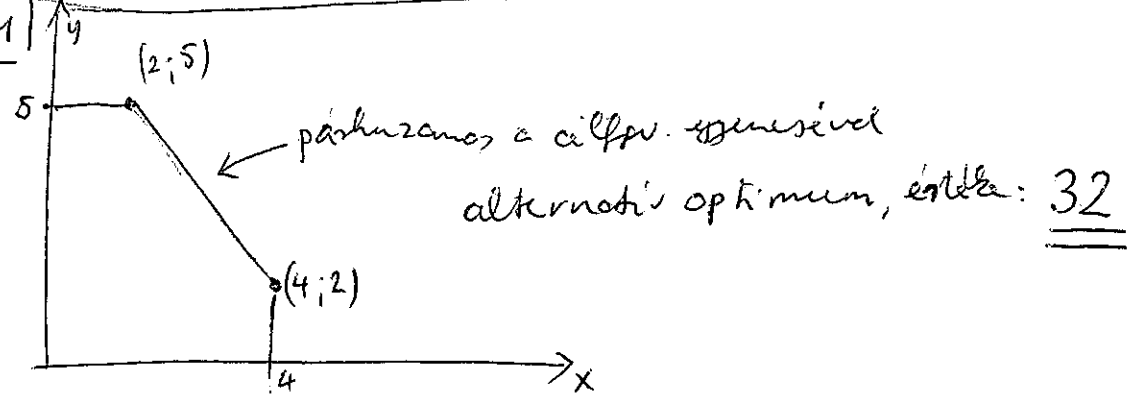 1)
y
(2;5)
5
párhuzamos a célfgv. egyenesével
alternatív optimum, értéke: 32
(4;2)
4
x